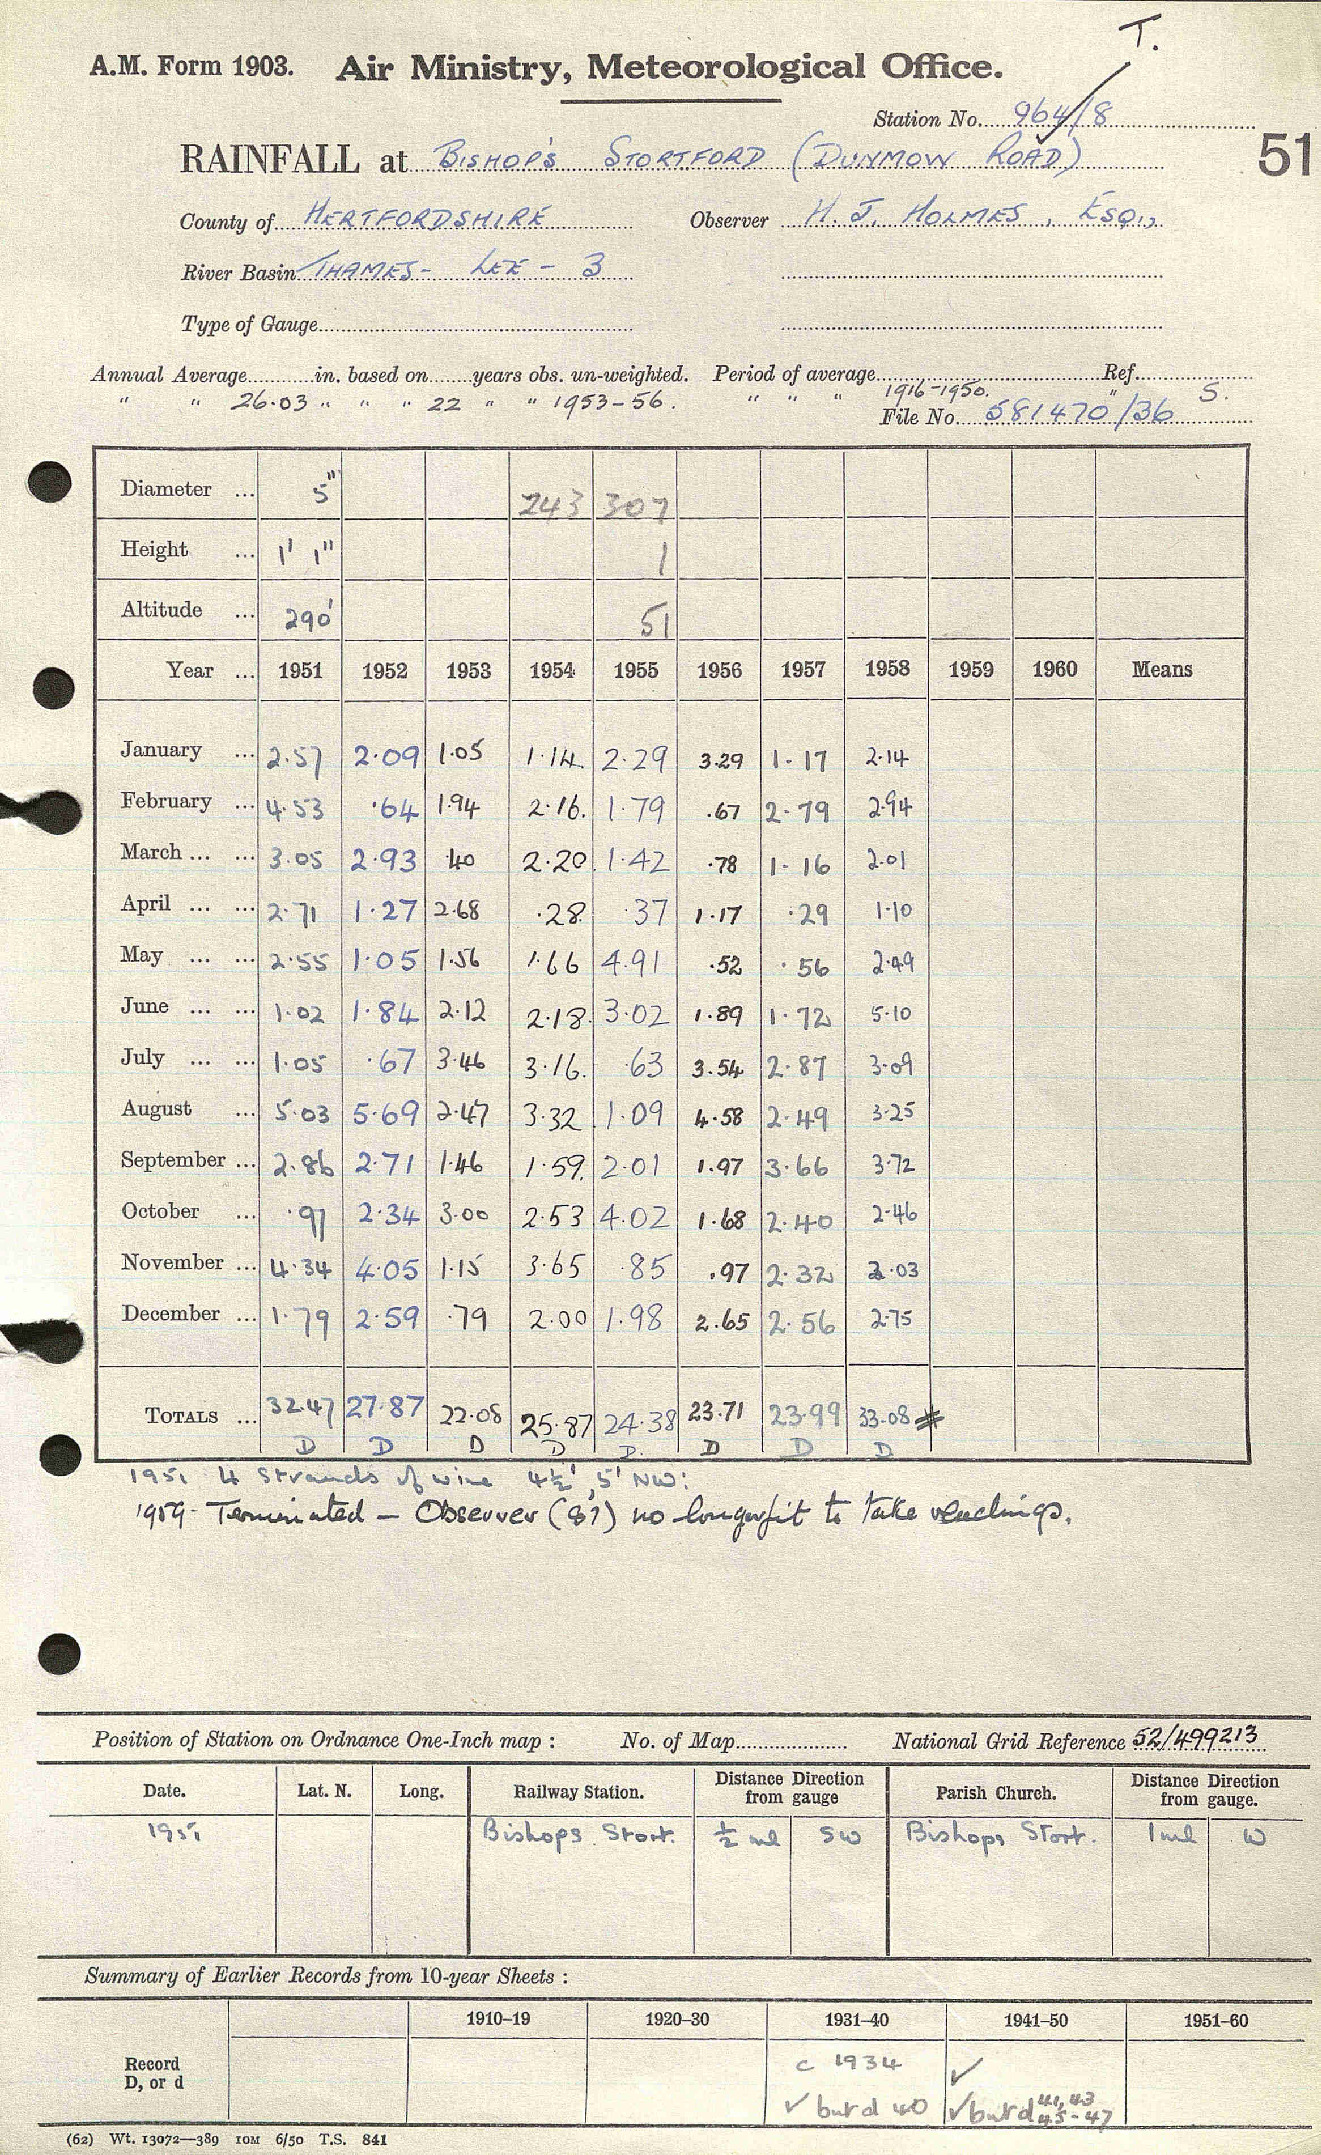 T.
A.M. Form 1903. Air Ministry, Meteorological Office.
Station No. 964/8
51
RAINFALL at BISHOP'S STORTFORD (DUNMOW ROAD)
County of HERTFORDSHIRE Observer H. J. HOLMES, ESQ.,
River Basin THAMES - LEE - 3
Type of Gauge
Annual Average in. based on years obs. un-weighted. Period of average Ref.
" " 26.03 " " " 22 " " 1953-56. " " " 1916-1950. " S.
File No. 581470/36
Diameter ... 5" 243 307
Height ... 1' 1" 1
Altitude ... 290' 51
Year ... 1951 1952 1953 1954 1955 1956 1957 1958 1959 1960 Means
January ... 2.57 2.09 1.05 1.14 2.29 3.29 1.17 2.14
February ... 4.53 .64 1.94 2.16 1.79 .67 2.79 2.94
March ... ... 3.05 2.93 .40 2.20 1.42 .78 1.16 2.01
April ... ... 2.71 1.27 2.68 .28 .37 1.17 .29 1.10
May ... ... 2.55 1.05 1.56 1.66 4.91 .52 .56 2.49
June ... ... 1.02 1.84 2.12 2.18 3.02 1.89 1.72 5.10
July ... ... 1.05 .67 3.46 3.16 .63 3.54 2.87 3.09
August ... 5.03 5.69 2.47 3.32 1.09 4.58 2.49 3.25
September ... 2.86 2.71 1.46 1.59 2.01 1.97 3.66 3.72
October ... .97 2.34 3.00 2.53 4.02 1.68 2.40 2.46
November ... 4.34 4.05 1.15 3.65 .85 .97 2.32 2.03
December ... 1.79 2.59 .79 2.00 1.98 2.65 2.56 2.75
TOTALS ... 32.47 27.87 22.08 25.87 24.38 23.71 23.99 33.08 #
D D D D D. D D D
1951 4 Strands of wire 4½', 5' NW:
1959 - Terminated - Observer (87) no longer fit to take readings.
Position of Station on Ordnance One-Inch map : No. of Map National Grid Reference 52/499213
Date. Lat. N. Long. Railway Station. Distance Direction from gauge Parish Church. Distance Direction from gauge.
1951 Bishops Stort. ½ ml SW Bishops Stort. 1 ml W
Summary of Earlier Records from 10-year Sheets :
1910-19 1920-30 1931-40 1941-50 1951-60
Record D, or d c 1934 ✓
✓ but d 40 ✓ but d 41, 43 45-47
(62) Wt. 13072—389 10M 6/50 T.S. 841